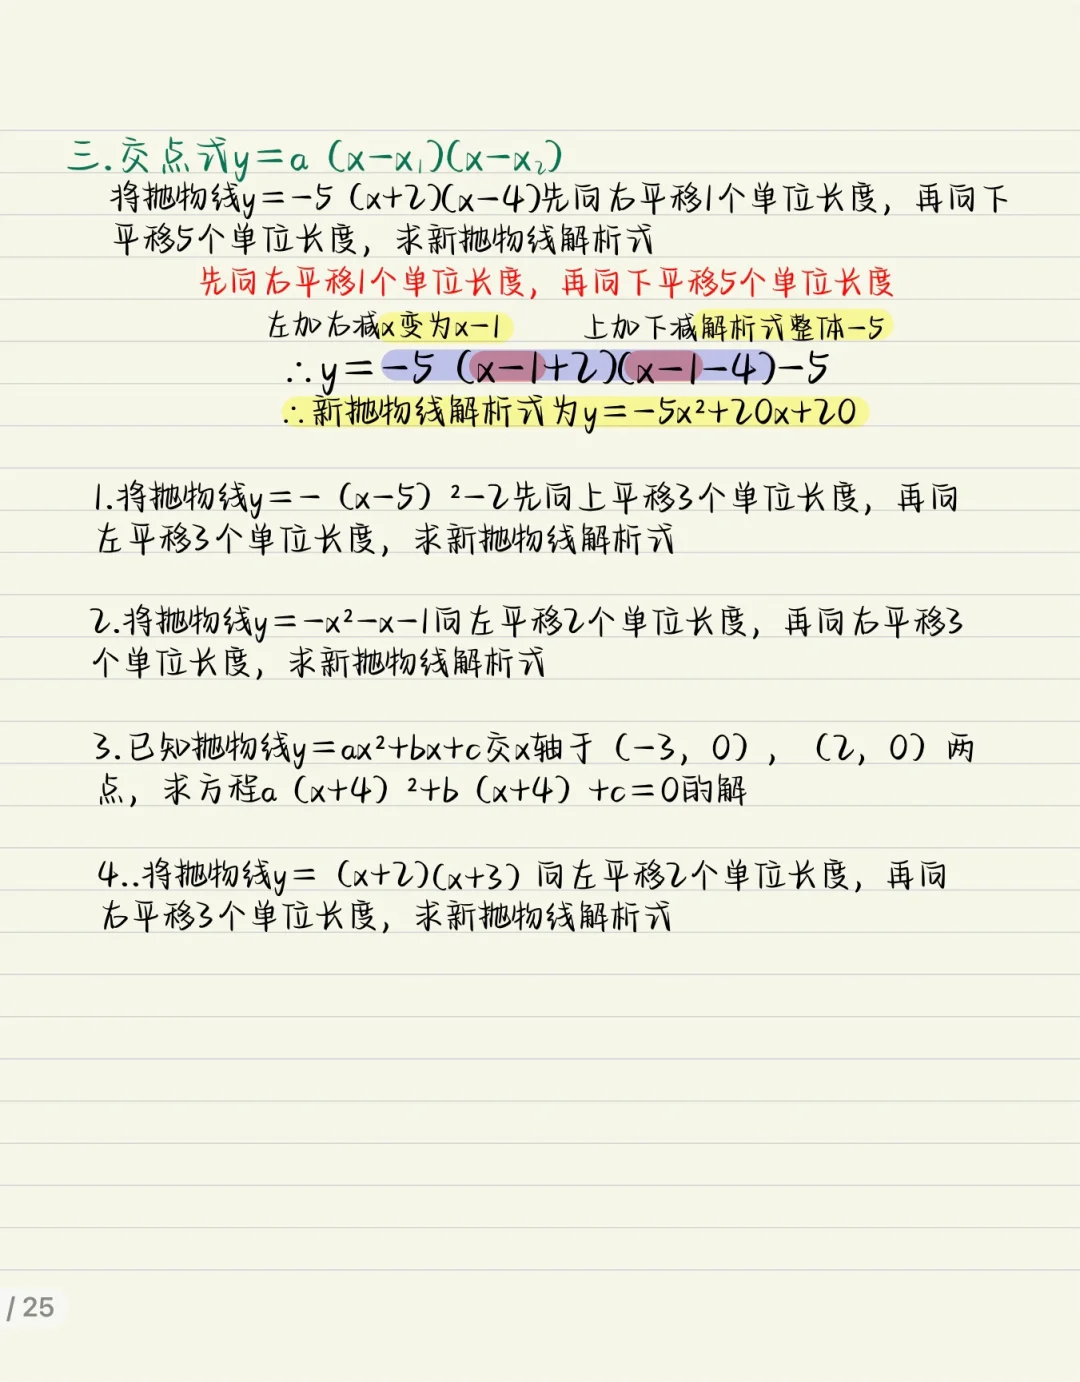 三.交点式y=a（x-x₁)(x-x₂)
将抛物线y=-5（x+2)(x-4)先向右平移1个单位长度，再向下
平移5个单位长度，求新抛物线解析式
先向右平移1个单位长度，再向下平移5个单位长度
左加右减x变为x-1 上加下减解析式整体-5
∴y=-5（x-1+2)(x-1-4)-5
∴新抛物线解析式为y=-5x²+20x+20
1.将抛物线y=-（x-5）²-2先向上平移3个单位长度，再向
左平移3个单位长度，求新抛物线解析式
2.将抛物线y=-x²-x-1向左平移2个单位长度，再向右平移3
个单位长度，求新抛物线解析式
3.已知抛物线y=ax²+bx+c交x轴于（-3，0），（2，0）两
点，求方程a（x+4）²+b（x+4）+c=0的解
4..将抛物线y=（x+2)(x+3）向左平移2个单位长度，再向
右平移3个单位长度，求新抛物线解析式
/ 25